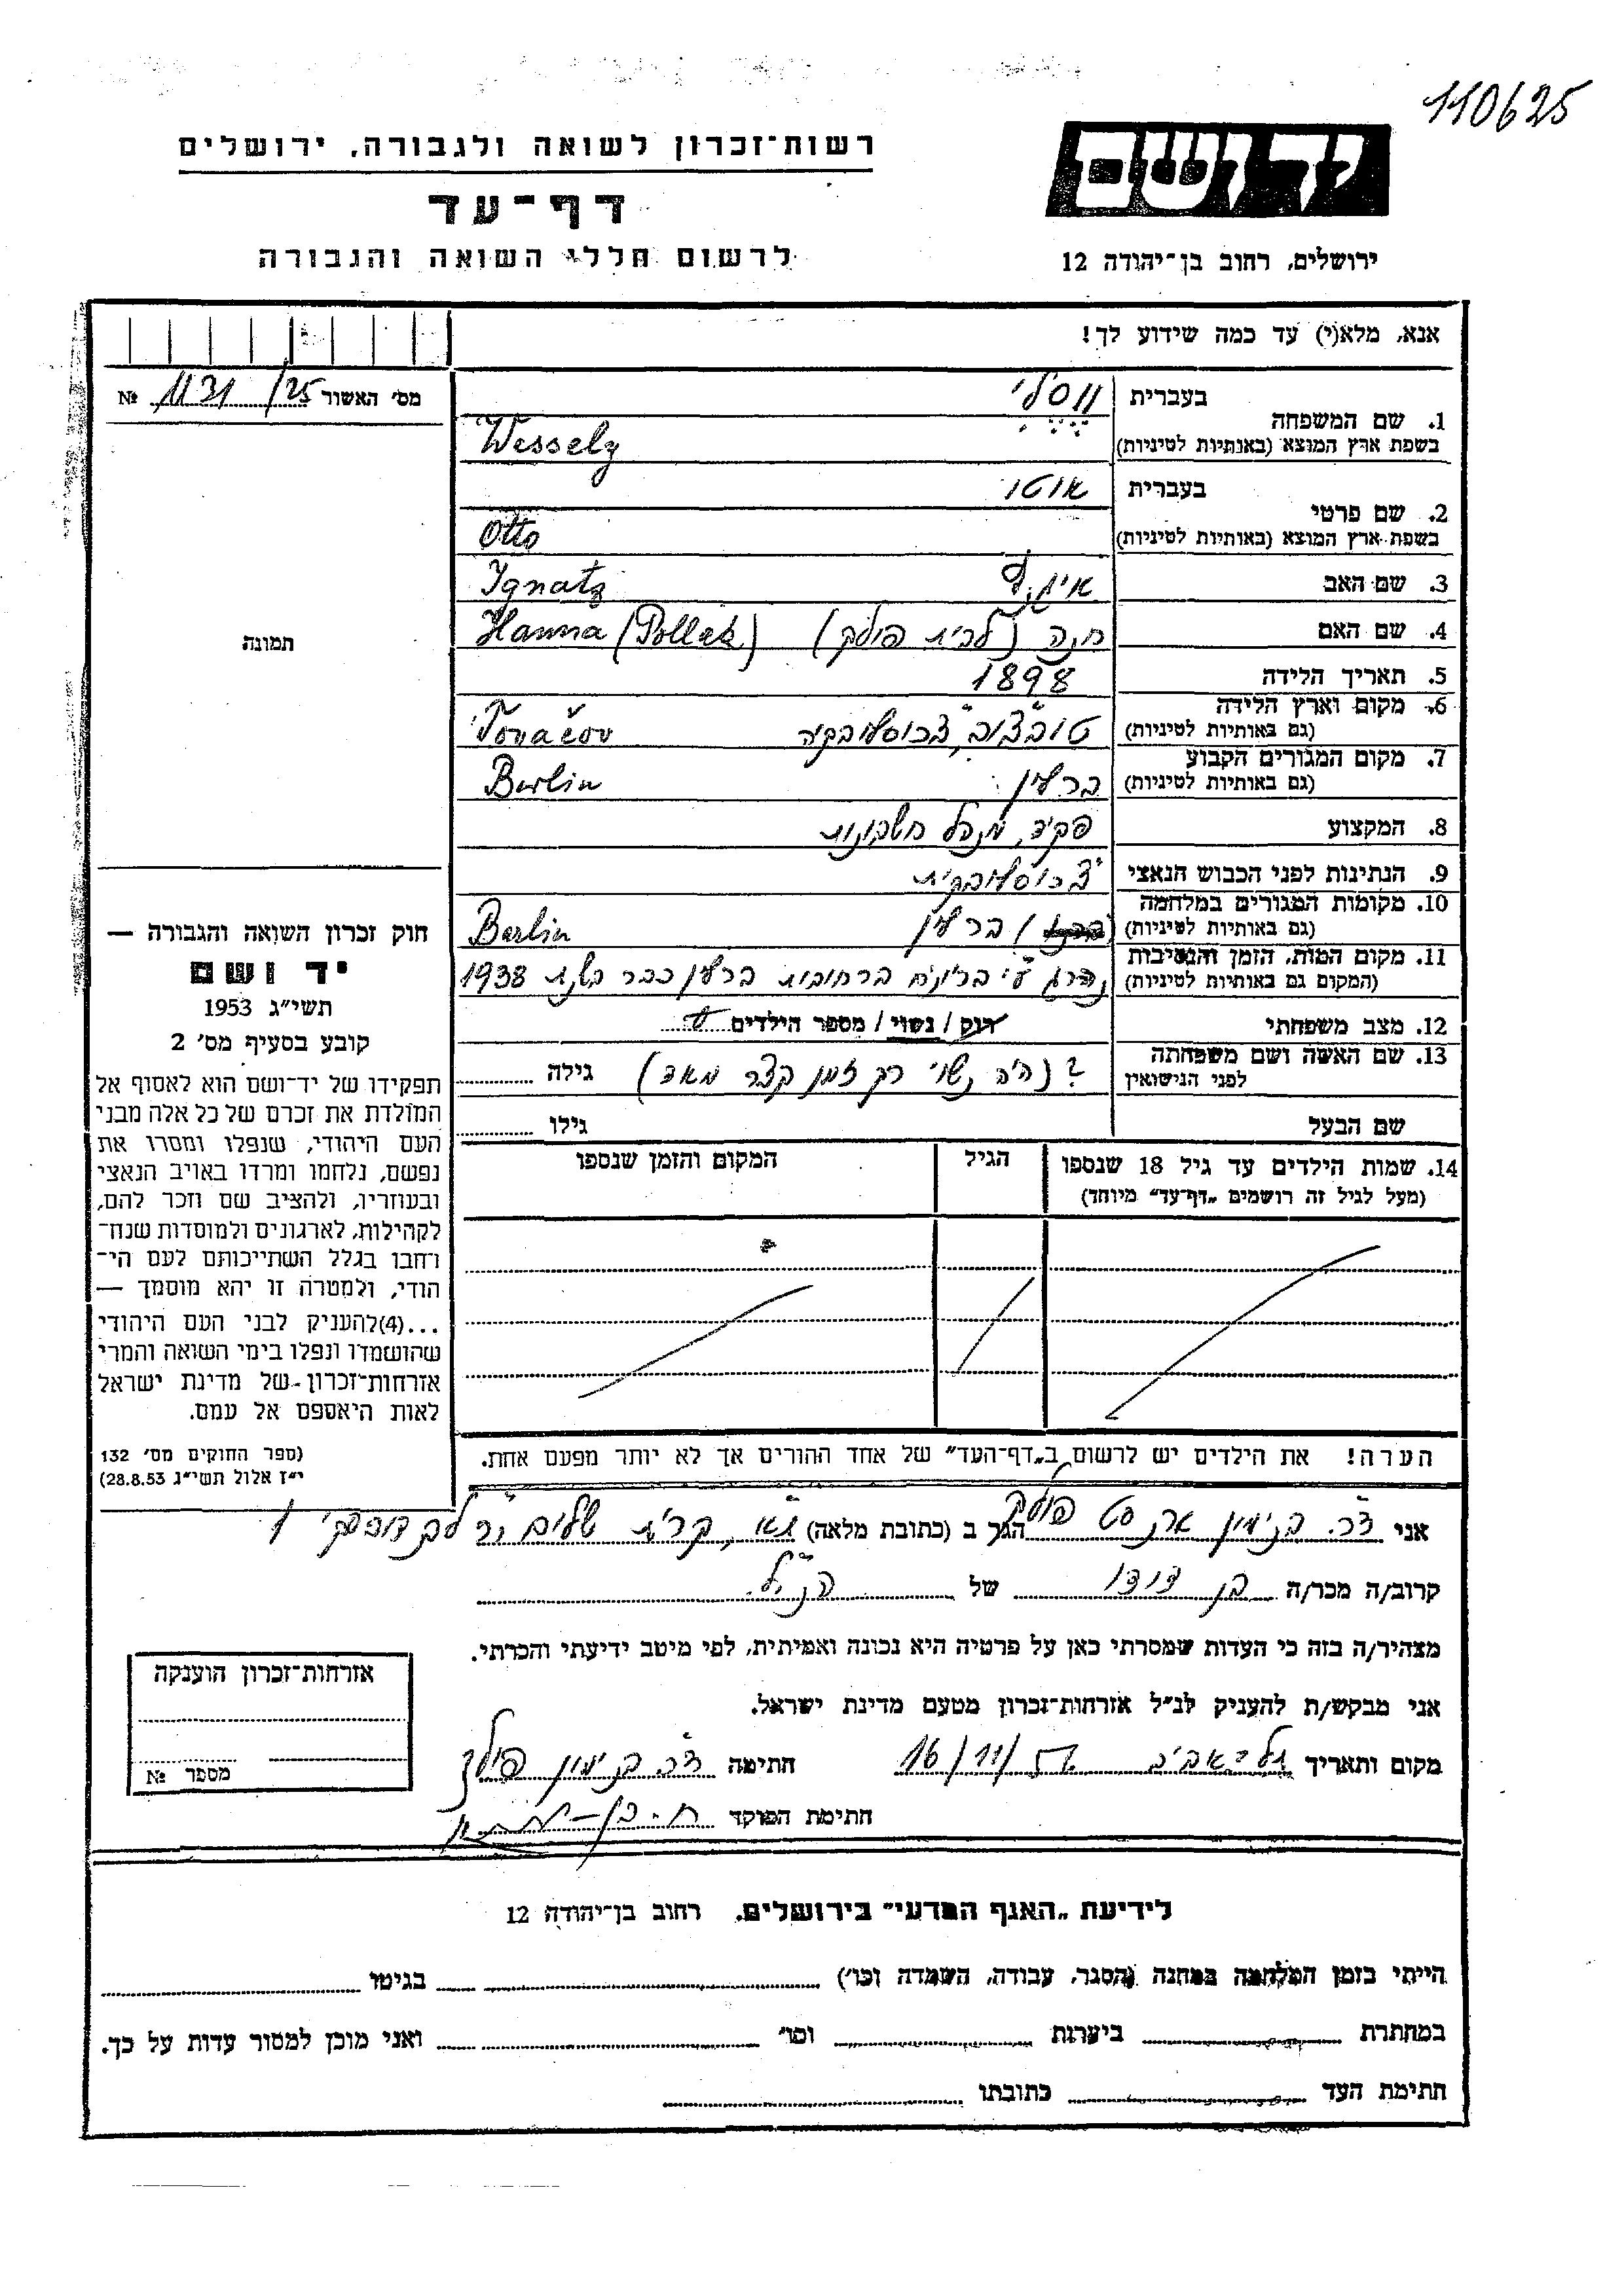 110625
יד ושם
ירושלים, רחוב בן־יהודה 12
רשות־זכרון לשואה ולגבורה, ירושלים
דף־עד
לרשום חללי השואה והגבורה
אנא, מלא(י) עד כמה שידוע לך!
מס׳ האשור 1131/25 №
תמונה
1. שם המשפחה
בעברית ווסלי
בשפת ארץ המוצא (באותיות לטיניות) Wessely
2. שם פרטי
בעברית אוטו
בשפת ארץ המוצא (באותיות לטיניות) Otto
3. שם האב Ignatz
4. שם האם חנה (לבית פולק) Hanna (Pollak)
5. תאריך הלידה 1898
6. מקום וארץ הלידה
(גם באותיות לטיניות) טובצוב, צ׳כוסלובקיה Tovačov
7. מקום המגורים הקבוע
(גם באותיות לטיניות) ברלין Berlin
8. המקצוע פקיד, מנהל חשבונות
9. הנתינות לפני הכבוש הנאצי צ׳כוסלובקית
10. מקומות המגורים במלחמה
(גם באותיות לטיניות) ברלין Berlin
11. מקום המות, הזמן והנסיבות
(המקום גם באותיות לטיניות) נהרג ע״י בריונים ברחובות ברלין כבר בשנת 1938
12. מצב משפחתי רוק / נשוי / מספר הילדים
13. שם האשה ושם משפחתה
לפני הנישואין ? (היה נשוי רק זמן קצר מאד) גילה
שם הבעל גילו
14. שמות הילדים עד גיל 18 שנספו
(מעל לגיל זה רושמים „דף־עד״ מיוחד)
הגיל
המקום והזמן שנספו
הערה! את הילדים יש לרשום ב„דף־העד״ של אחד ההורים אך לא יותר מפעם אחת.
חוק זכרון השואה והגבורה —
יד ושם
תשי״ג 1953
קובע בסעיף מס׳ 2
תפקידו של יד־ושם הוא לאסוף אל
המולדת את זכרם של כל אלה מבני
העם היהודי, שנפלו ומסרו את
נפשם, נלחמו ומרדו באויב הנאצי
ובעוזריו, ולהציב שם וזכר להם,
לקהילות, לארגונים ולמוסדות שנח־
רחבו בגלל השתייכותם לעם הי־
הודי, ולמטרה זו יהא מוסמך —
...(4)להעניק לבני העם היהודי
שהושמדו ונפלו בימי השואה והמרי
אזרחות־זכרון של מדינת ישראל
לאות היאספם אל עמם.
(ספר החוקים מס׳ 132
י״ז אלול תשי״ג 28.8.53)
אני ד״ר בנימין ארנסט פולק הגר ב (כתובת מלאה) ת״א, קרית שלום
קרוב/ה מכר/ה בן דודו של הנ״ל
מצהיר/ה בזה כי העדות שמסרתי כאן על פרטיה היא נכונה ואמיתית, לפי מיטב ידיעתי והכרתי.
אני מבקש/ת להעניק לנ״ל אזרחות־זכרון מטעם מדינת ישראל.
מקום ותאריך תל־אביב 16/11/ חתימה ד״ר בנימין פולק
חתימת הפוקד
אזרחות־זכרון הוענקה
מספר №
לידיעת „האגף המדעי״ בירושלים, רחוב בן־יהודה 12
הייתי בזמן המלחמה במחנה (הסגר, עבודה, השמדה וכו׳) בגיטו
במחתרת ביערות וכו׳ ואני מוכן למסור עדות על כך.
חתימת העד כתובתו